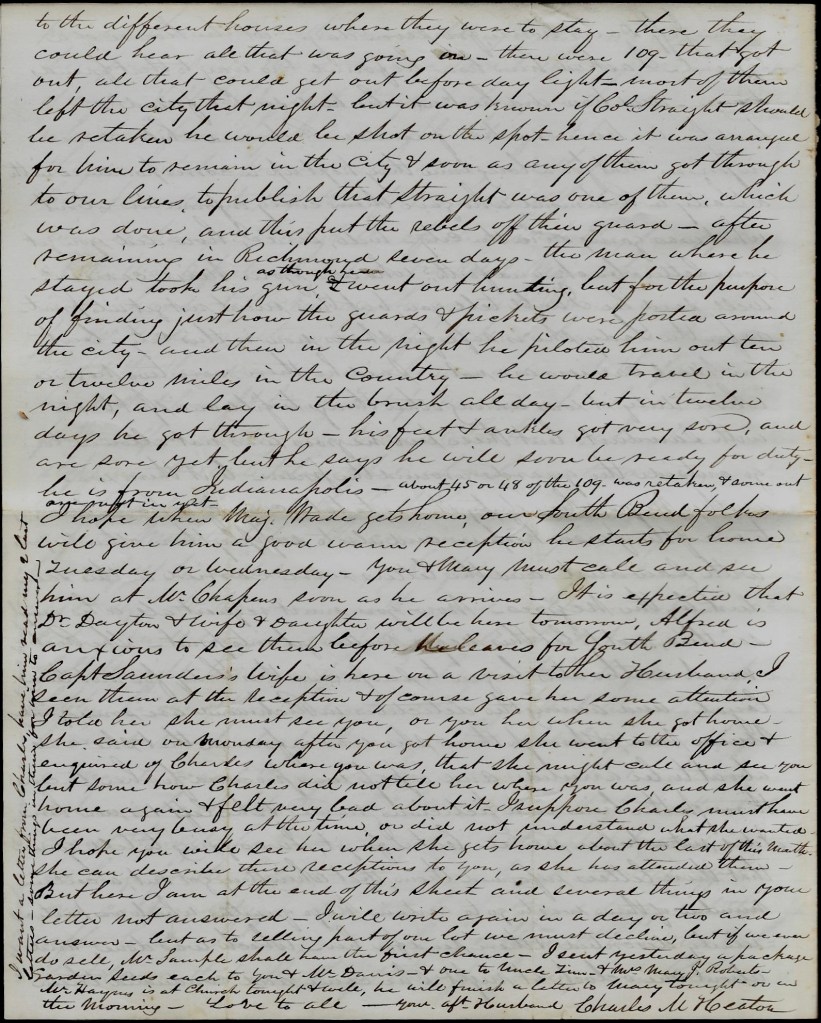 to the different houses where they were to stay - there they
could hear all that was going on - there were 109 that got
out, all that could get out before day light - most of them
left the city that night - but it was known if Col. Straight should
be retaken he would be shot on the spot - hence it was arranged
for him to remain in the City & soon as any of them got through
to our lines, to publish that Straight was one of them, which
was done, and this put the rebels off their guard - after
remaining in Richmond seven days - the man where he
as though he
stayed took his gun, & went out hunting, but for the purpose
of finding just how the guards & pickets were posted around
the city - and then in the night he piloted him out ten
or twelve miles in the Country - he would travel in the
night, and lay in the brush all day - but in twelve
days he got through - his feet & ankles got very sore, and
are sore yet, but he says he will soon be ready for duty -
he is from Indianapolis - about 45 or 48 of the 109 was retaken, & some out
are not in yet -
I hope when Maj. Wade gets home, our South Bend folks
will give him a good warm reception he starts for home
Tuesday or Wednesday - You & Mary must call and see
him at Mr. Chapens soon as he arrives - It is expected that
Dr. Dayton & Wife & Daughter will be here tomorrow, Alfred is
anxious to see them before he leaves for South Bend -
Capt Saunders's Wife is here on a visit to her Husband, I
seen them at the reception & of course gave her some attention
I told her she must see you, or you her when she got home -
she said on Monday after you got home she went to the office &
enquired of Charles where you was, that she might call and see you
but some how Charles did not tell her where you was, and she went
home again & felt very bad about it - I suppose Charles must have
been very busy at the time, or did not understand what she wanted -
I hope you will see her when she gets home about the last of this Month -
she can describe these receptions to you, as she has attended them -
But here I am at the end of this sheet and several things in your
letter not answered - I will write again in a day or two and
answer - but as to selling part of our lot we must decline, but if we ever
do sell, Mr. Sample shall have the first chance - I sent yesterday a package
garden seeds each to you & Mr Davis - & one to Uncle Tim - & Mrs Mary J. Roberts -
Mr Haynes is at Church tonight & well, he will finish a letter to Mary tonight or in
the Morning - Love to all - your aft. Husband Charles M Heaton
I want a letter from Charley, have him read my 2 last
letters - some things in them